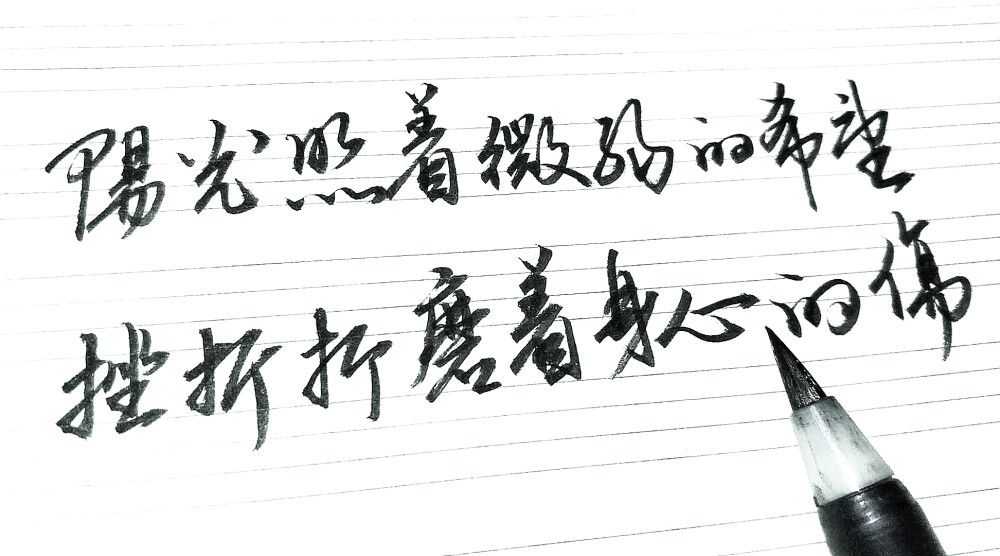 陽光照着微弱的希望
挫折折磨着身心的傷